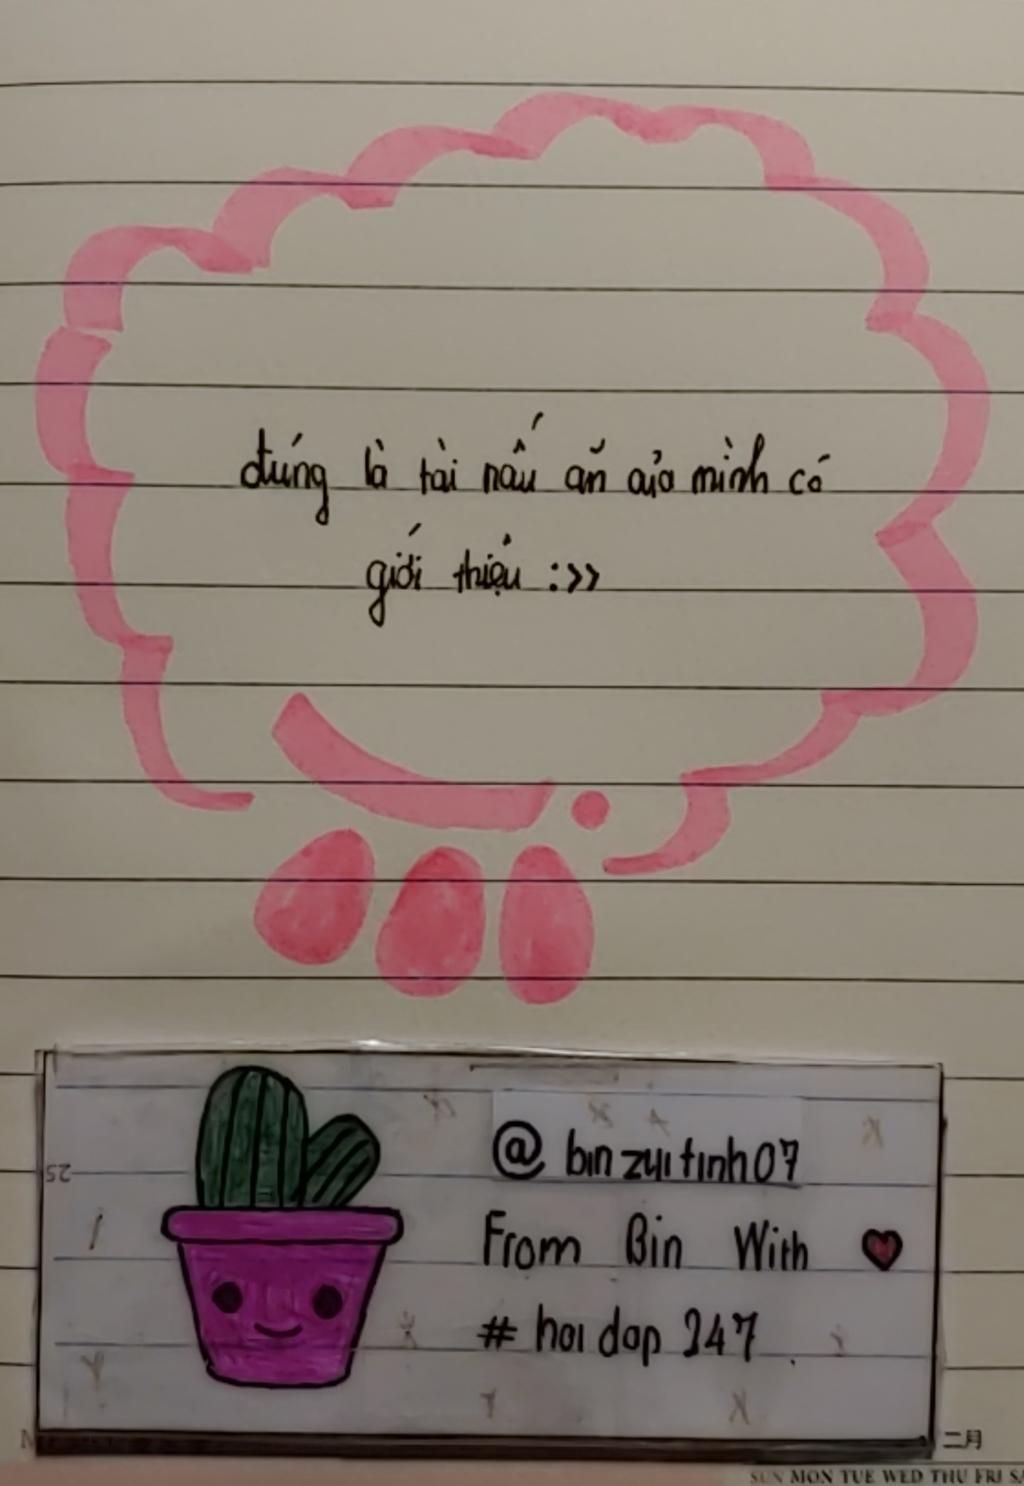 đúng là tài nấu ăn của mình có
giới thiệu :>>
@ binzuitinh07
From Bin With
# hoidap 247
25
二月
SUN MON TUE WED THU FRI SA